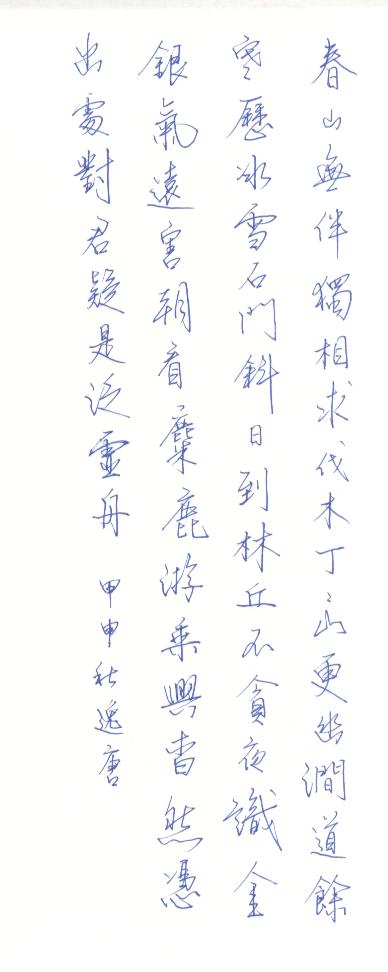 春山無伴獨相求伐木丁〻山更幽澗道餘
寒歷冰雪石門斜日到林丘不貪夜識金
銀氣遠害朝看麋鹿游乘興杳然憑
出處對君疑是泛靈舟 甲申秋逸唐